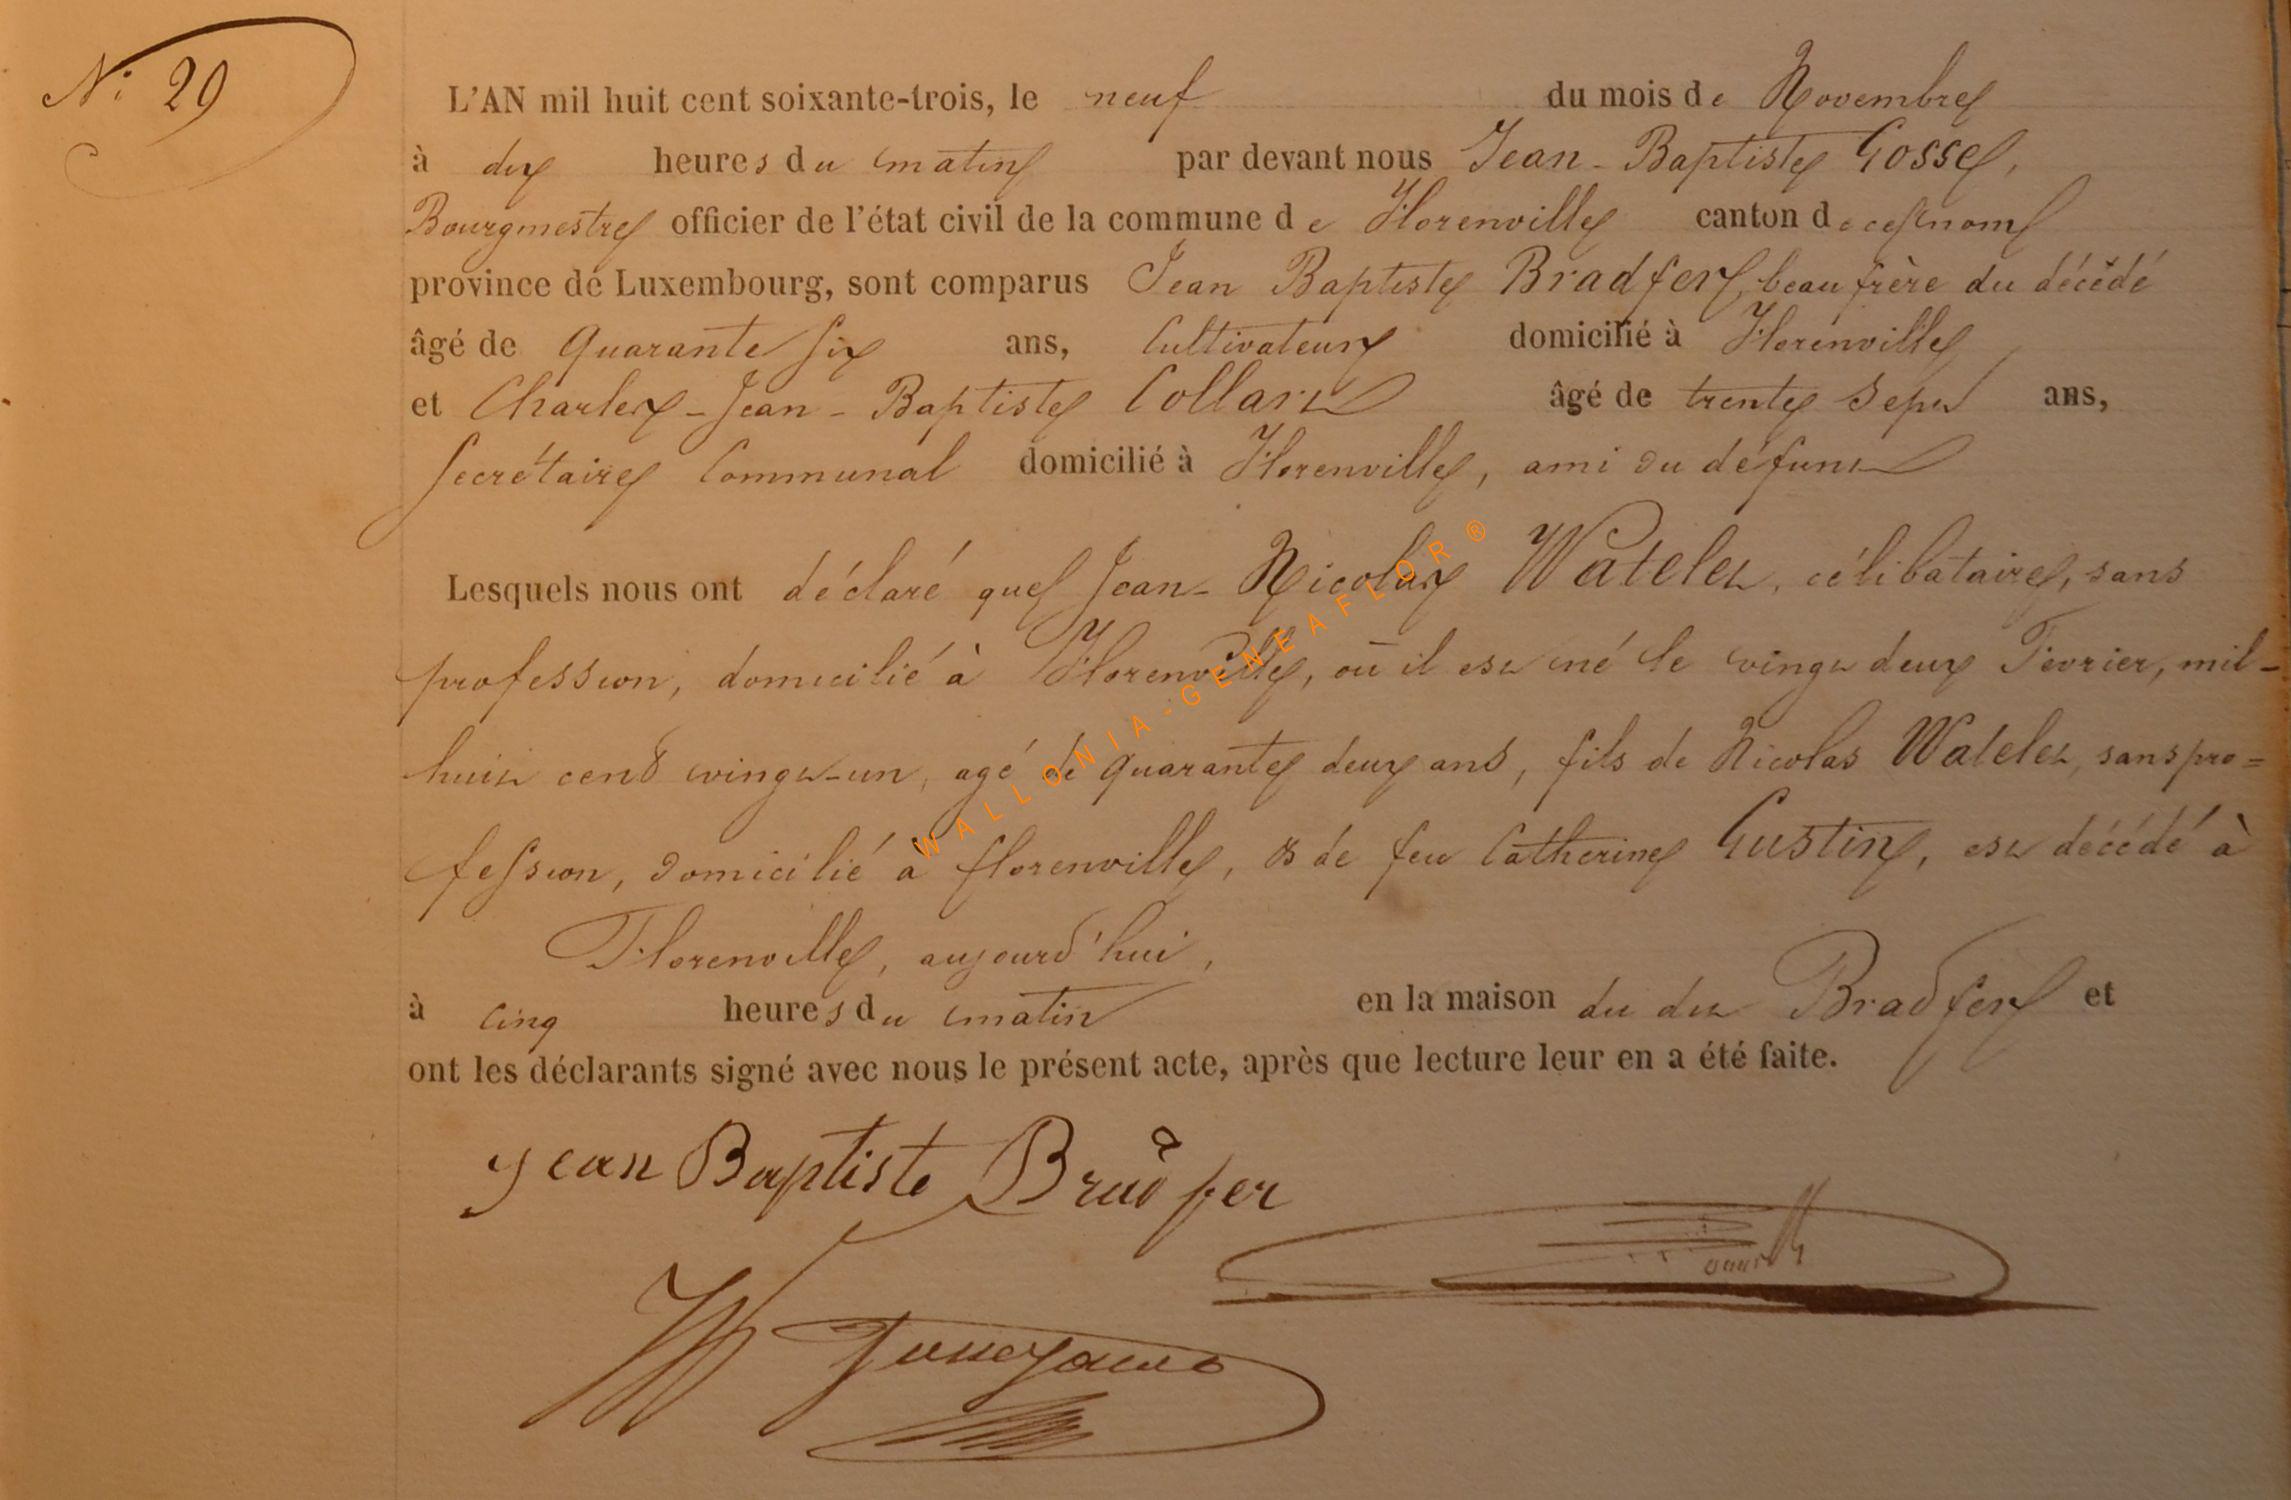 N.° 29
L'AN mil huit cent soixante-trois, le neuf du mois de Novembre
à dix heures du matin par devant nous Jean-Baptiste Gosse,
Bourgmestre officier de l'état civil de la commune de Florenville canton de ce nom
province de Luxembourg, sont comparus Jean Baptiste Bradfer, beau frère du décédé
âgé de quarante six ans, Cultivateur domicilié à Florenville
et Charles-Jean-Baptiste Collart âgé de trente sept ans,
Secrétaire Communal domicilié à Florenville, ami du défunt
Lesquels nous ont déclaré que Jean-Nicolas Watelet, célibataire, sans
profession, domicilié à Florenville, où il est né le vingt deux Fevrier, mil-
huit cent vingt-un, agé de quarante deux ans, fils de Nicolas Watelet, sans pro=
fession, domicilié à florenville, & de feu Catherine Gustin, est décédé à
Florenville, aujourd'hui,
à cinq heures du matin en la maison du dit Bradfer et
ont les déclarants signé avec nous le présent acte, après que lecture leur en a été faite.
Jean Baptiste Bradfer
WALLONIA-GENEAFLOR®